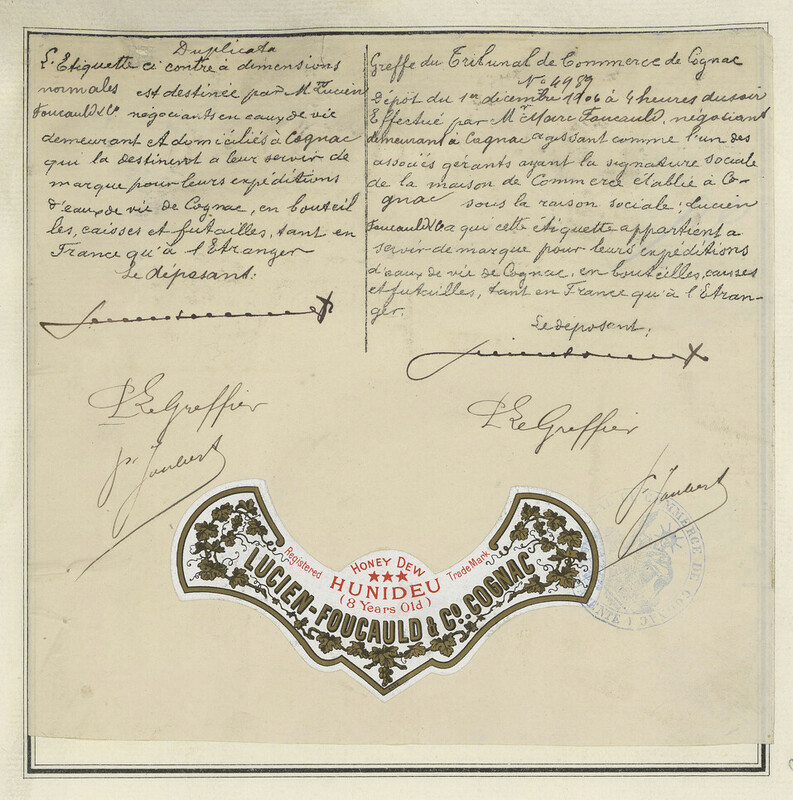 Duplicata
L'Etiquette ci contre à dimensions
normales est destinée par Mr Lucien
Foucauld & Co négociants en eaux de vie
demeurant et domiciliés à Cognac
qui la destinent a leur servir de
marque pour leurs expéditions
d'eaux de vie de Cognac, en bouteil
les, caisses et futailles, tant en
France qu'à l'Etranger
Le déposant:
P Le Greffier
Joubert
Greffe du Tribunal de Commerce de Cognac
No 4989
Dépot du 1er décembre 1906 à 4 heures du soir
Effectué par Mr Marc Foucauld, négociant
demeurant à Cognac agissant comme l'un des
associés gérants ayant la signature sociale
de la maison de Commerce établie à Co-
gnac sous la raison sociale: Lucien
Foucauld & Co a qui cette étiquette appartient a
servir de marque pour leurs expéditions
d'eaux de vie de Cognac, en bouteilles, caisses
et futailles, tant en France qu'à l'Etran-
ger.
Le déposant:
P Le Greffier
Joubert
Registered
HONEY DEW
Trade Mark
★★★
HUNIDEU
(8 Years Old)
LUCIEN-FOUCAULD & Co. COGNAC
COMMERCE DE COGNAC